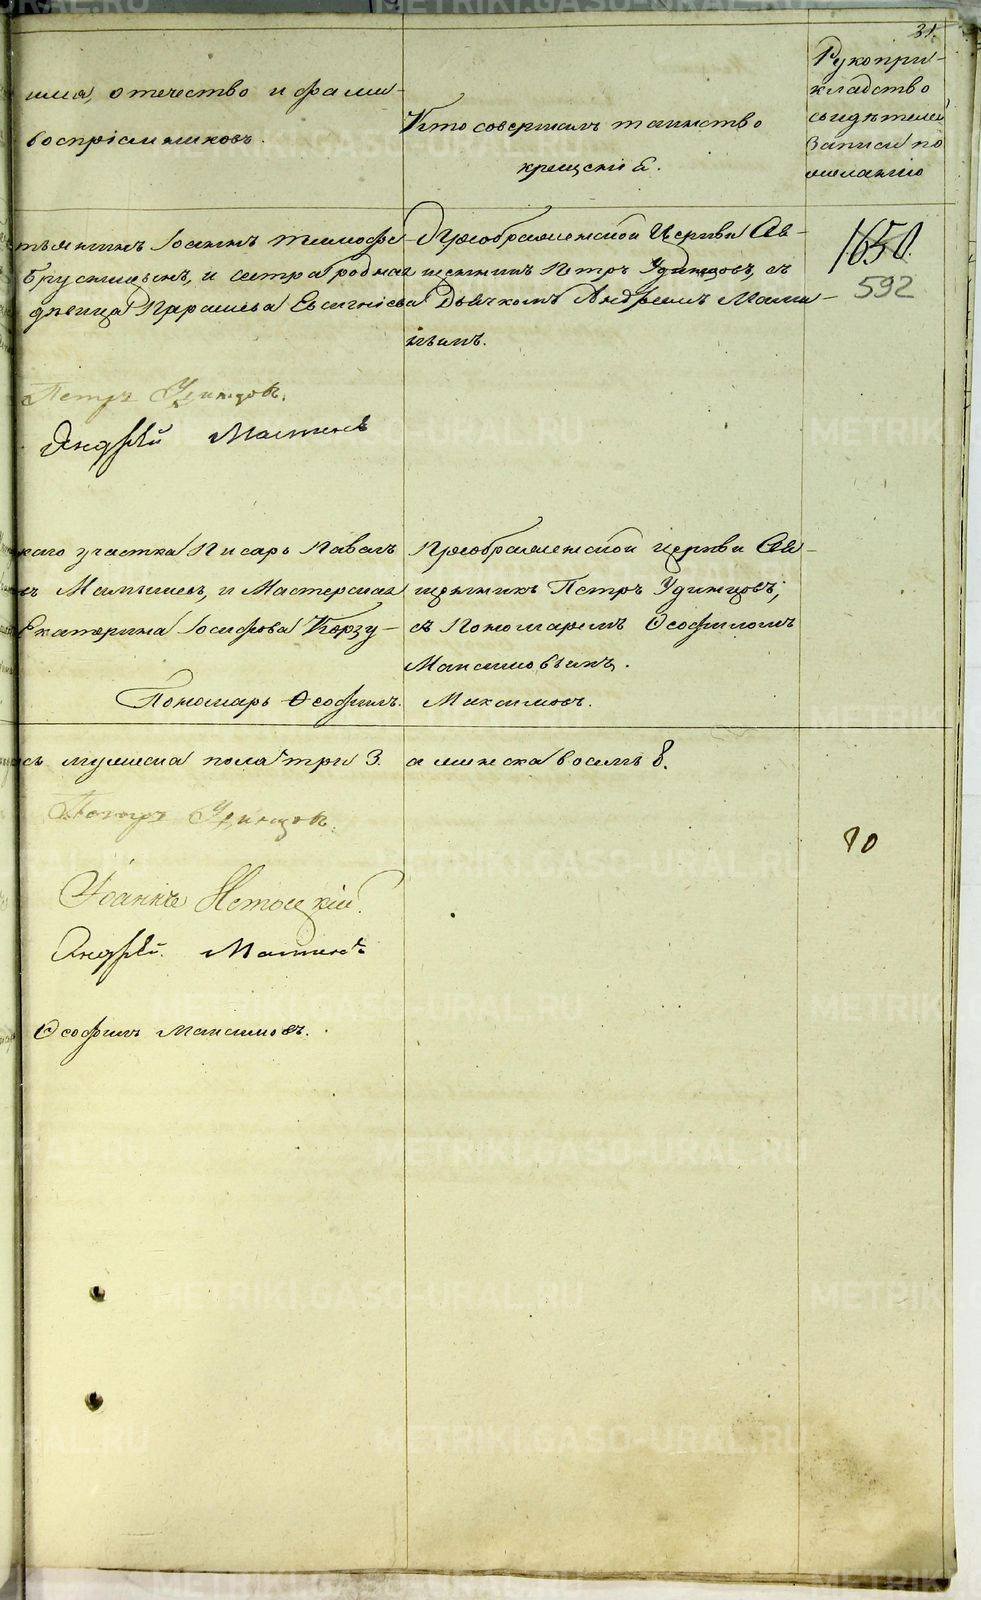 31.
имя, отечество и фами-
воспріемниковъ.
Кто совершалъ таинство
крещенія.
Рукопри-
кладство
свидѣтелей
записи по
желанію
Іоаннъ Тимофе-
и сестра родная
дѣвица Параскева Евсигніева
Преображенской Церкви Свя-
щенникъ Петръ Удинцовъ, съ
Дьячкомъ Андреемъ Мами-
нымъ.
1650.
592
Петръ Удинцовъ.
Андрей Маминъ
каго участка Писарь Павелъ
и Мастерская
Екатерина Іосифова Корзу-
Преображенской церкви Свя-
щенникъ Петръ Удинцовъ,
съ Пономаремъ Ѳеофиломъ
Максимовымъ.
Пономарь Ѳеофилъ Максимовъ.
мужеска пола три 3. а женска восемь 8.
Петръ Удинцовъ.
10
Іоаннъ
Андрей Маминъ
Ѳеофилъ Максимовъ.
METRIKI.GASO-URAL.RU